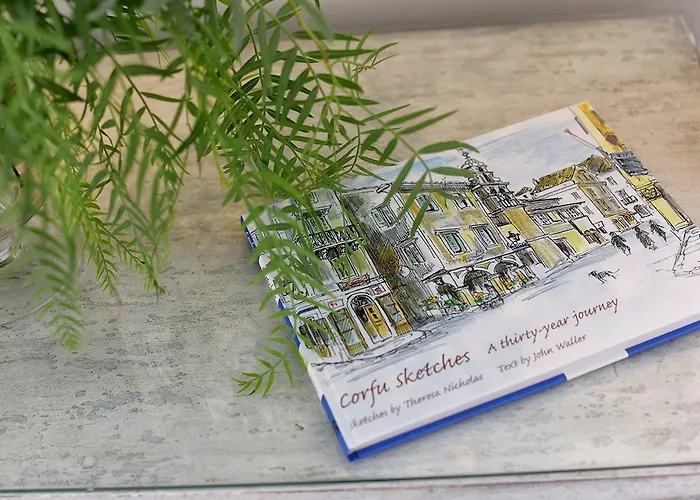 Corfu sketches A thirty-year journey
Sketches by Theresa Nicholas Text by John Waller